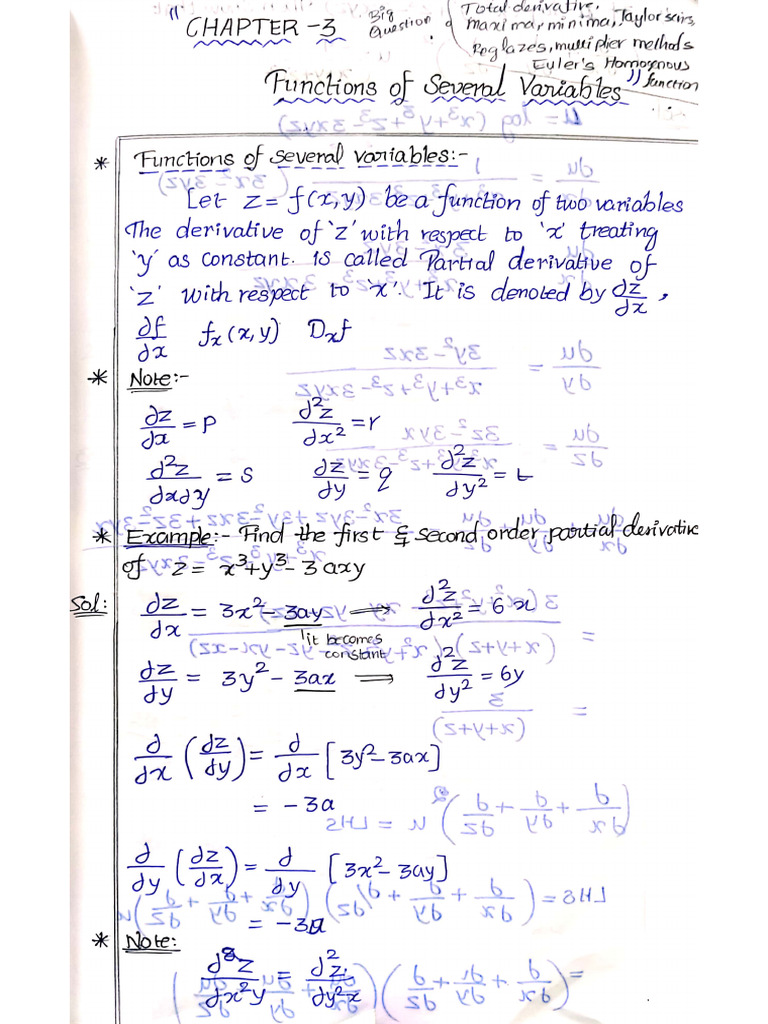 " CHAPTER -3
Big Question of
Total derivative,
maxima, minima, Taylor sairs,
Reglazes, multiplier methods
Euler's Homogenous
function "
Functions of Several Variables
* Functions of several variables:-
Let z = f(x,y) be a function of two variables
The derivative of 'z' with respect to 'x' treating
'y' as constant. is called Partial derivative of
'z' with respect to 'x'. It is denoted by ∂z/∂x ,
∂f/∂x fx(x,y) Dxf
* Note:-
∂z/∂x = p ∂²z/∂x² = r
∂²z/∂x∂y = s ∂z/∂y = q ∂²z/∂y² = t
* Example:- Find the first & second order partial derivative
of z = x³+y³-3axy
Sol: ∂z/∂x = 3x² - 3ay ⟹ ∂²z/∂x² = 6x
it becomes
constant
∂z/∂y = 3y² - 3ax ⟹ ∂²z/∂y² = 6y
∂/∂x (∂z/∂y) = ∂/∂x [3y²-3ax]
= -3a
∂/∂y (∂z/∂x) = ∂/∂y [3x²-3ay]
= -3a
* Note:
∂²z/∂x²y = ∂²z/∂y²x